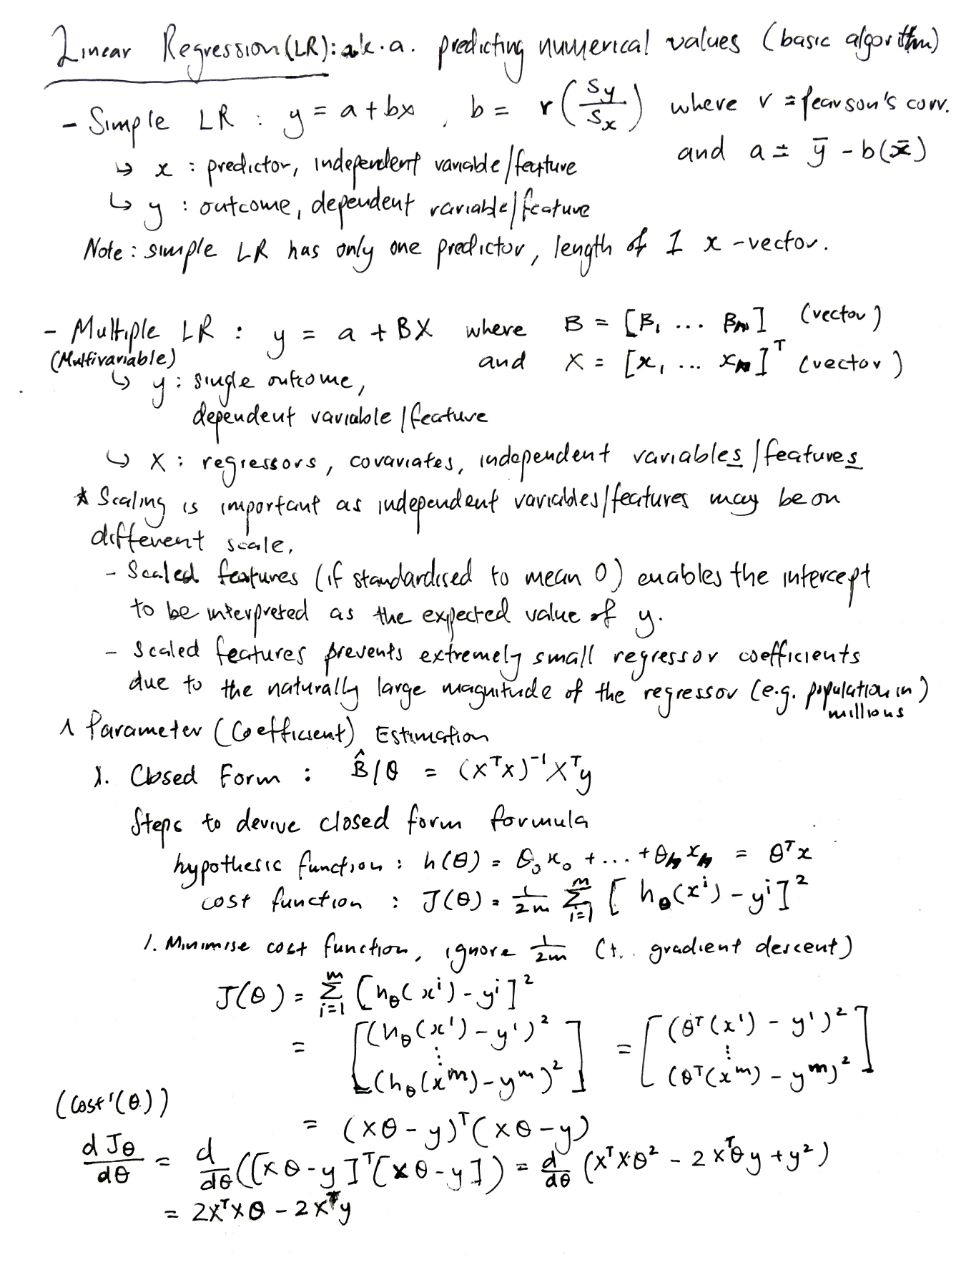 Linear Regression (LR): a.k.a. predicting numerical values (basic algorithm)
- Simple LR : y = a + bx , b = r(Sy/Sx) where r = pearson's corr.
and a = ȳ - b(x̄)
↳ x : predictor, independent variable/feature
↳ y : outcome, dependent variable/feature
Note : simple LR has only one predictor, length of 1 x-vector.
- Multiple LR : y = a + BX where B = [B₁ ... Bₙ] (vector)
(Multivariable) and X = [x₁ ... xₙ]ᵀ (vector)
↳ y : single outcome,
dependent variable/feature
↳ X : regressors, covariates, independent variables/features
* Scaling is important as independent variables/features may be on
different scale.
- Scaled features (if standardised to mean 0) enables the intercept
to be interpreted as the expected value of y.
- Scaled features prevents extremely small regressor coefficients
due to the naturally large magnitude of the regressor (e.g. population in millions)
^ Parameter (Coefficient) Estimation
1. Closed Form : B̂/θ = (XᵀX)⁻¹Xᵀy
Steps to derive closed form formula
hypothesis function : h(θ) = θ₀x₀ + ... + θₙxₙ = θᵀx
cost function : J(θ) = 1/2m Σᵢ₌₁ᵐ [hθ(xⁱ) - yⁱ]²
1. Minimise cost function, ignore 1/2m ( gradient descent)
J(θ) = Σᵢ₌₁ᵐ [hθ(xⁱ) - yⁱ]²
= [(hθ(x¹) - y¹)² ⋮ (hθ(xᵐ) - yᵐ)²] = [(θᵀ(x¹) - y¹)² ⋮ (θᵀ(xᵐ) - yᵐ)²]
(Cost'(θ))
= (xθ - y)ᵀ(xθ - y)
dJθ/dθ = d/dθ([xθ - y]ᵀ[xθ - y]) = d/dθ (xᵀxθ² - 2xᵀθy + y²)
= 2xᵀxθ - 2xᵀy